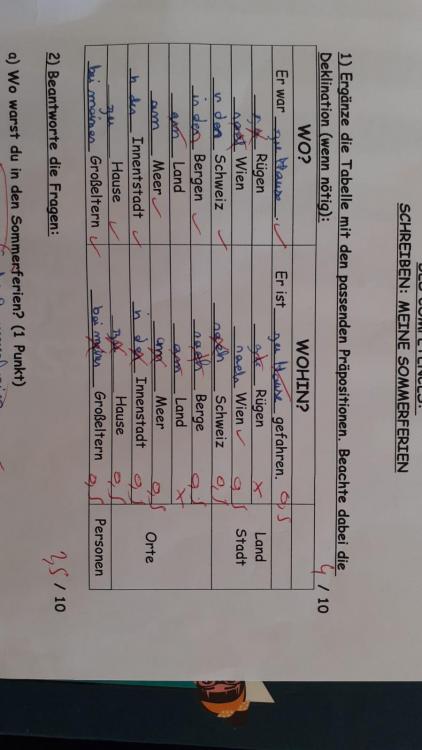 SCHREIBEN: MEINE SOMMERFERIEN
1) Ergänze die Tabelle mit den passenden Präpositionen. Beachte dabei die
Deklination (wenn nötig): 4 / 10
WO? WOHIN?
Er war zu Hause. Er ist zu Hause gefahren. 0,5
Rügen Rügen x Land
Wien nach Wien 0,5 Stadt
in den Schweiz nach Schweiz 0,5
in den Bergen nach Berge 0,5
am Land am Land x Orte
am Meer am Meer 0,5
in der Innentstadt in der Innenstadt 0,5
zu Hause Hause 0,5
bei meinen Großeltern bei meinen Großeltern 0,5 Personen
2) Beantworte die Fragen: 3,5 / 10
a) Wo warst du in den Sommerferien? (1 Punkt)